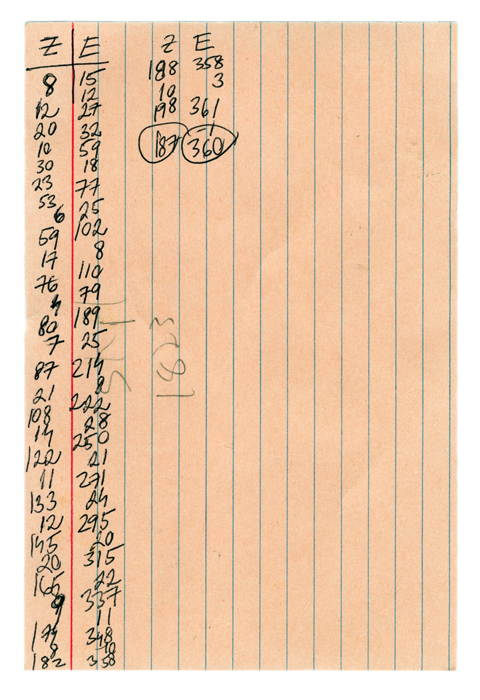 Z
8
12
20
10
30
23
53
6
59
17
76
4
80
7
87
21
108
14
122
11
133
12
145
20
165
9
174
8
182
E
15
12
27
32
59
18
77
25
102
8
110
79
189
25
214
8
222
28
250
21
271
24
295
20
315
22
337
11
348
10
358
Z
188
10
198
187
E
358
3
361
1
360
1823